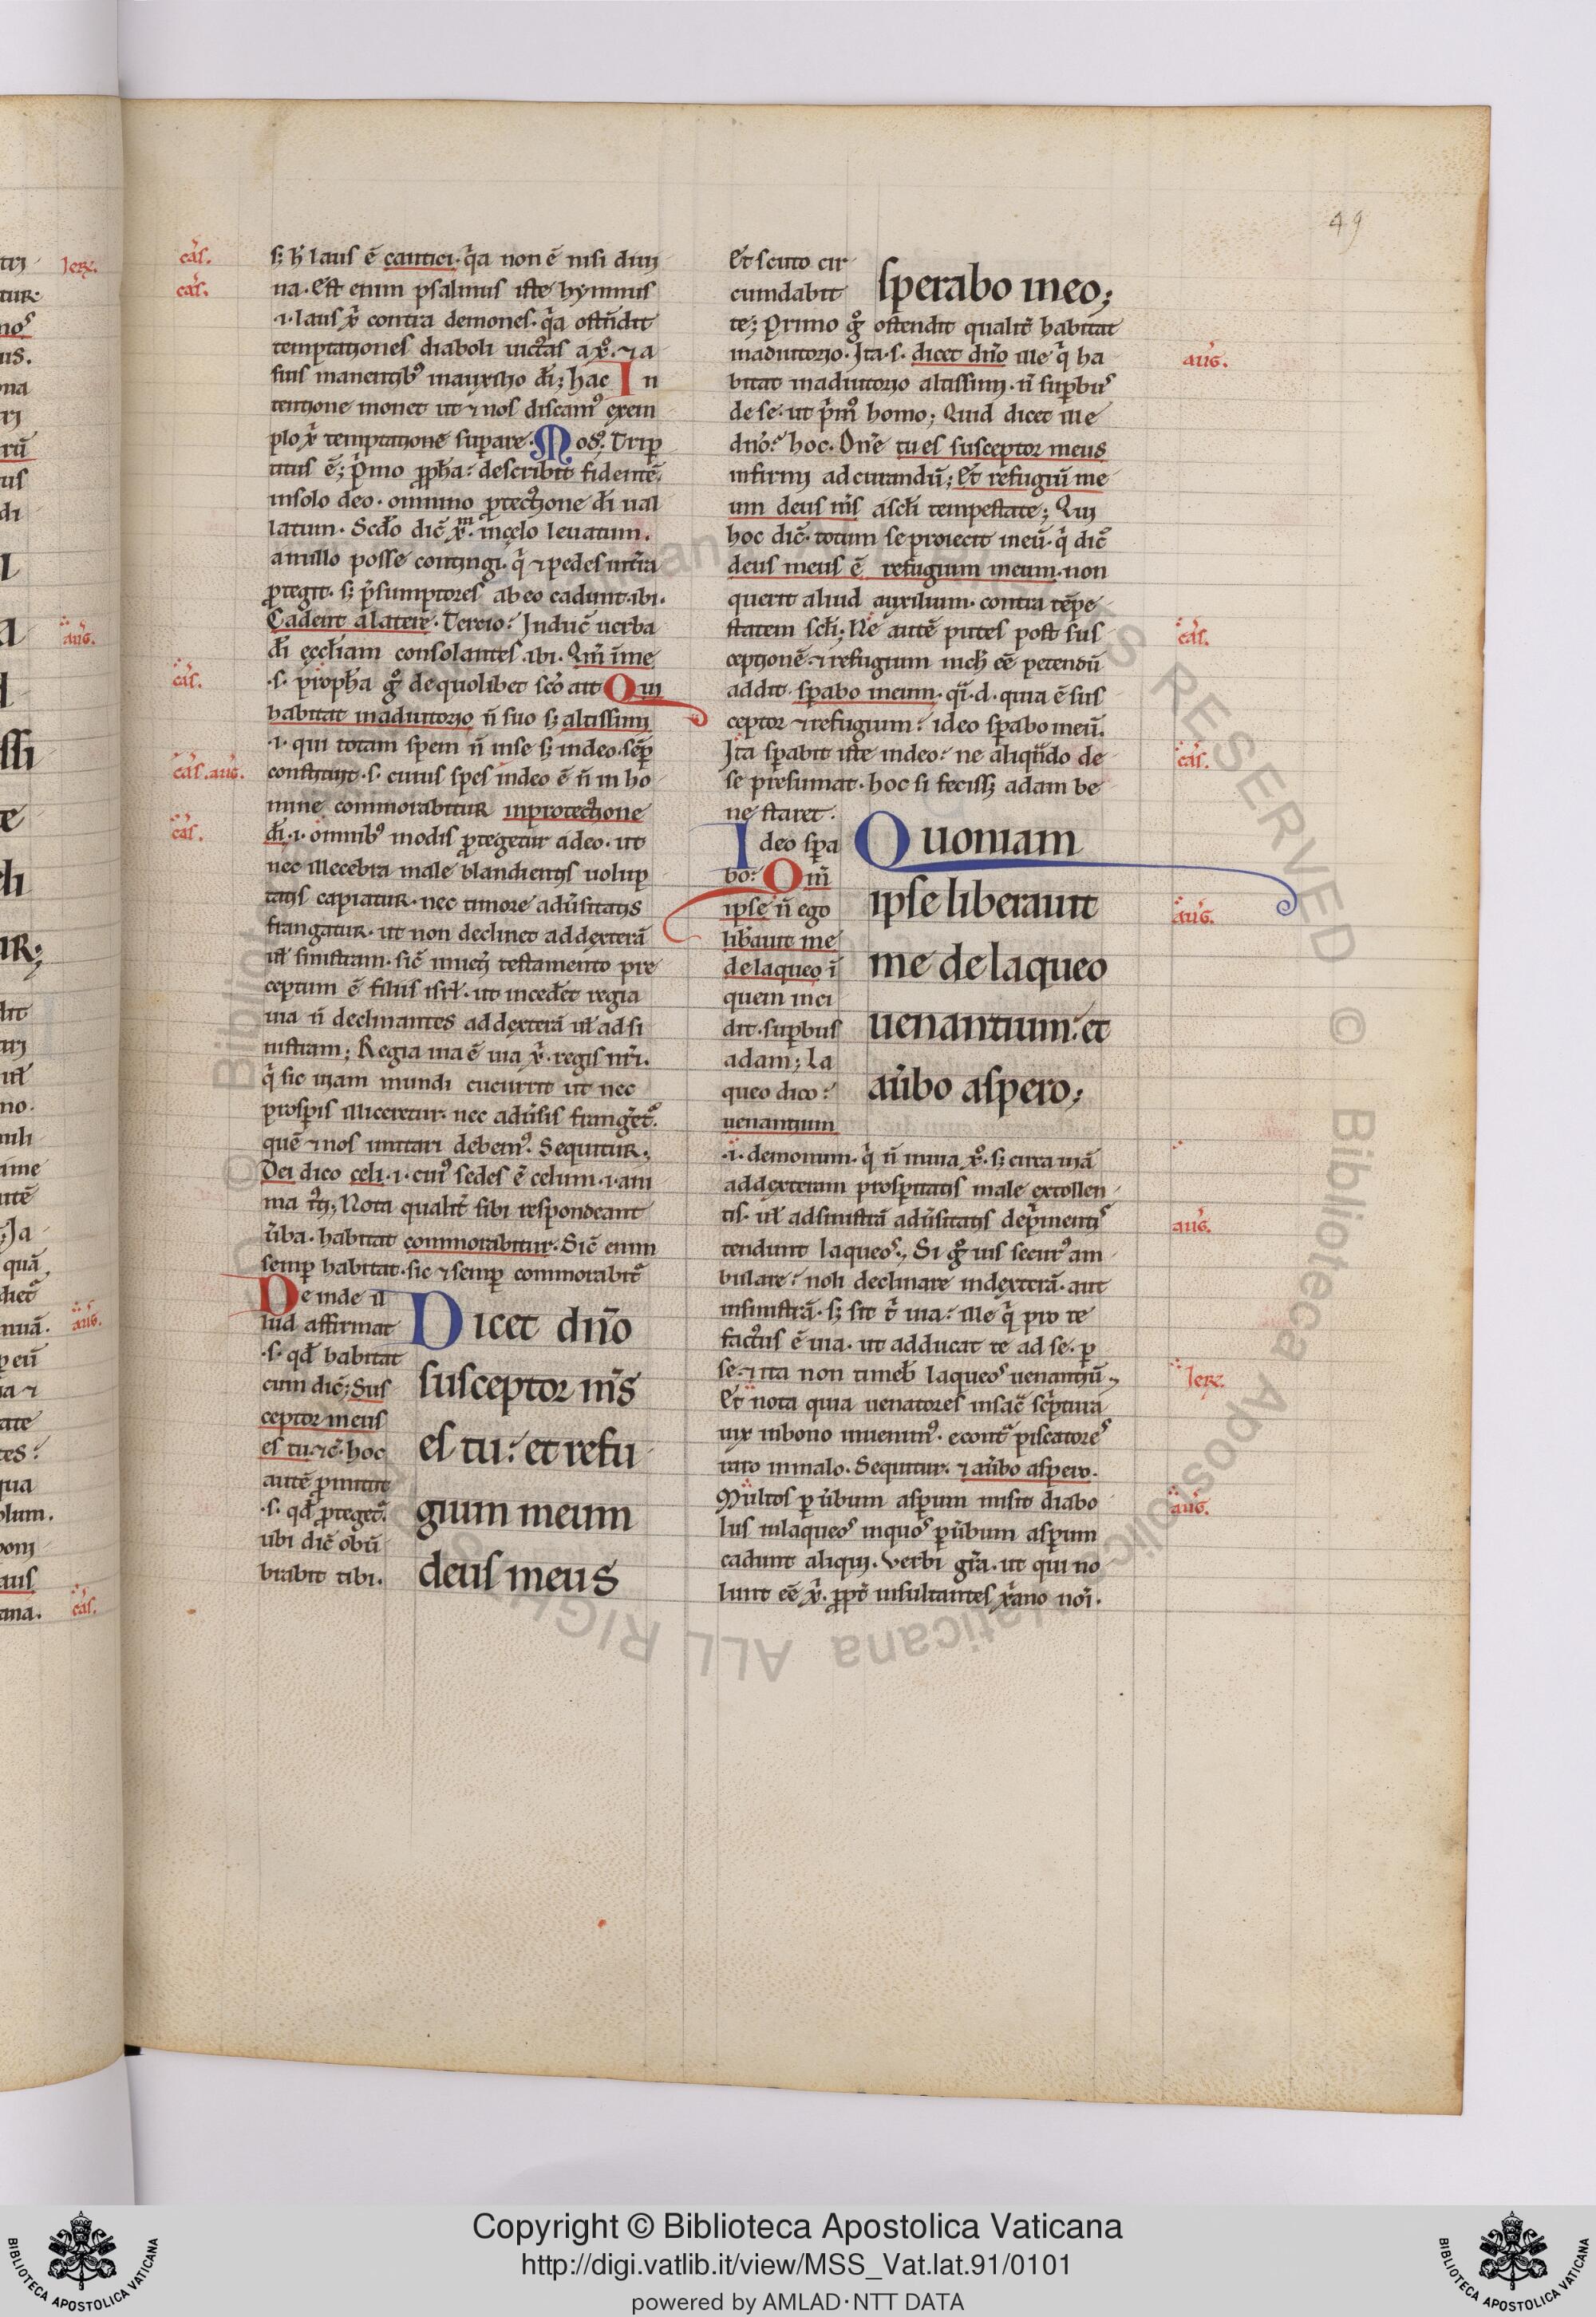 49
cas.
cas.
s; h̄ laus ē cantici. q̊a non ē nisi diui
na. Est enim psalmus iste hymnus
.i. laus xp̄i contra demones. q̊a ostēdit
temptationes diaboli uictas a xp̄o. ⁊ a
suis manentib⁹ in auxilio dī; hac In
tentione monet ut ⁊ nos discam⁹ exem
plo xp̄i temptationē suꝑare. Mod⁹. Triꝑ
titus ē; p̄mo ꝓph̄a: describit fidentē.
in solo deo. omnino ꝓtectione dī ual
latum. Scd̄o dic̄ xp̄m. in celo leuatum.
a nullo posse contingi. q̊ ⁊ pedes intīa
ꝓtegit. s; p̄sumptores ab eo cadunt. ibi.
Cadent a latere. Tercio: Induc̄ uerba
dī eccl̄iam consolantes. ibi. Qm̄ ī me
cas.
.s. proph̄a g̊ de quolibet sc̄o ait Qui
habitat in adiutorio n̄ suo s; altissimi
.i. qui totam spem n̄ in se s; in deo. semꝑ
cas. aug.
constituit. s. cuius spes in deo ē n̄ in ho
mine commorabitur in protectione
cas.
dī. i. omnib⁹ modis ꝓtegetur a deo. ut
nec illecebra male blandientis uolup
tatis capiatur. nec timore adūsitatis
frangatur. ut non declinet ad dexterā
ul̄ sinistram. sic̄ in ueti testamento pre
ceptum ē filiis isrl̄. ut incederēt regia
uia n̄ declinantes ad dexterā ul̄ ad si
nistram; Regia uia ē uia xp̄i. regis nr̄i.
q̊ sic uiam mundi cucurrit ut nec
prosꝑis illiceretur. nec adūsis franget̄.
quē ⁊ nos imitari debem⁹. Sequitur.
Dei dico celi. i. cui⁹ sedes ē celum. i. ani
ma iusti; Nota qualit̄ sibi respondeant
ūba. habitat commorabitur. Sic̄ enim
semꝑ habitat. sic ⁊ semꝑ commorabit̄
De inde il
lud affirmat
.s. qd̄ habitat
cum dic̄; Sus
ceptor meus
es tu. ⁊c̄. hoc
autē ꝓmittit
.s. qd̄ ꝓteget̄.
ubi dic̄ obū
brabit tibi.
Dicet dn̄o
susceptor m̄s
es tu: et refu
gium meum
deus meus
Et scuto cir
cumdabit
sperabo in eo;
te; Primo g̊ ostendit qualit̄ habitat
aug.
in adiutorio. Ita. s. dicet dn̄o ille q̊ ha
bitat in adiutorio altissimi. n̄ suꝑbus
de se. ut p̄m⁹ homo; Quid dicet ille
dn̄o: hoc. Dn̄e tu es susceptor meus
infirmi ad curandū; Et refugiū me
um deus m̄s a scl̄i tempestate; Qui
hoc dic̄. totum se proiecit in eū. q̊ dic̄
deus meus ē refugium meum. non
querit aliud auxilium. contra tēpe
cas.
statem scl̄i; Ne autē putes post sus
ceptionē. ⁊ refugium nich̄ eē petendū
addit. sꝑabo in eum. qi. d. quia ē sus
ceptor ⁊ refugium: ideo sꝑabo in eū.
cas.
Ita sꝑabit iste in deo: ne aliqn̄do de
se presumat. hoc si fecisset adam be
ne staret.
Ideo sꝑa
bo: Qm̄
aug.
ipse n̄ ego
lib̄auit me
de laqueo ī
quem inci
dit. suꝑbus
adam; la
queo dico:
uenantium
Quoniam
ipse liberauit
me de laqueo
uenantium. et
a ūbo aspero;
.i. demonum. q̊ n̄ in uia xp̄o. s; circa uiā
ad dexteram prosꝑitatis male extollen
aug.
tis. ul̄ ad sinistrā adūsitatis dep̄mentis
tendunt laqueos. Si g̊ uis secur⁹ am
bulare: noli declinare in dexterā. aut
in sinistrā. s; sit t̄ uia: ille q̊ pro te
factus ē uia. ut adducat te ad se. ꝑ
Ierc.
se. ⁊ ita non timeb̄ laqueos uenantiū.
Et nota quia uenatores in sac̄ sc̄ptura
uix in bono inuenim⁹. econt̄ piscatores
raro in malo. Sequitur. ⁊ a ūbo asꝑo.
aug.
Multos ꝑ ūbum asꝑum misit diabo
lus in laqueos in quos ꝑ ūbum asꝑum
cadunt aliqui. Verbi gr̄a. ut qui no
lunt eē xp̄i. ꝓpt̄ insultantes xp̄iano noī.
Copyright © Biblioteca Apostolica Vaticana
http://digi.vatlib.it/view/MSS_Vat.lat.91/0101
powered by AMLAD·NTT DATA